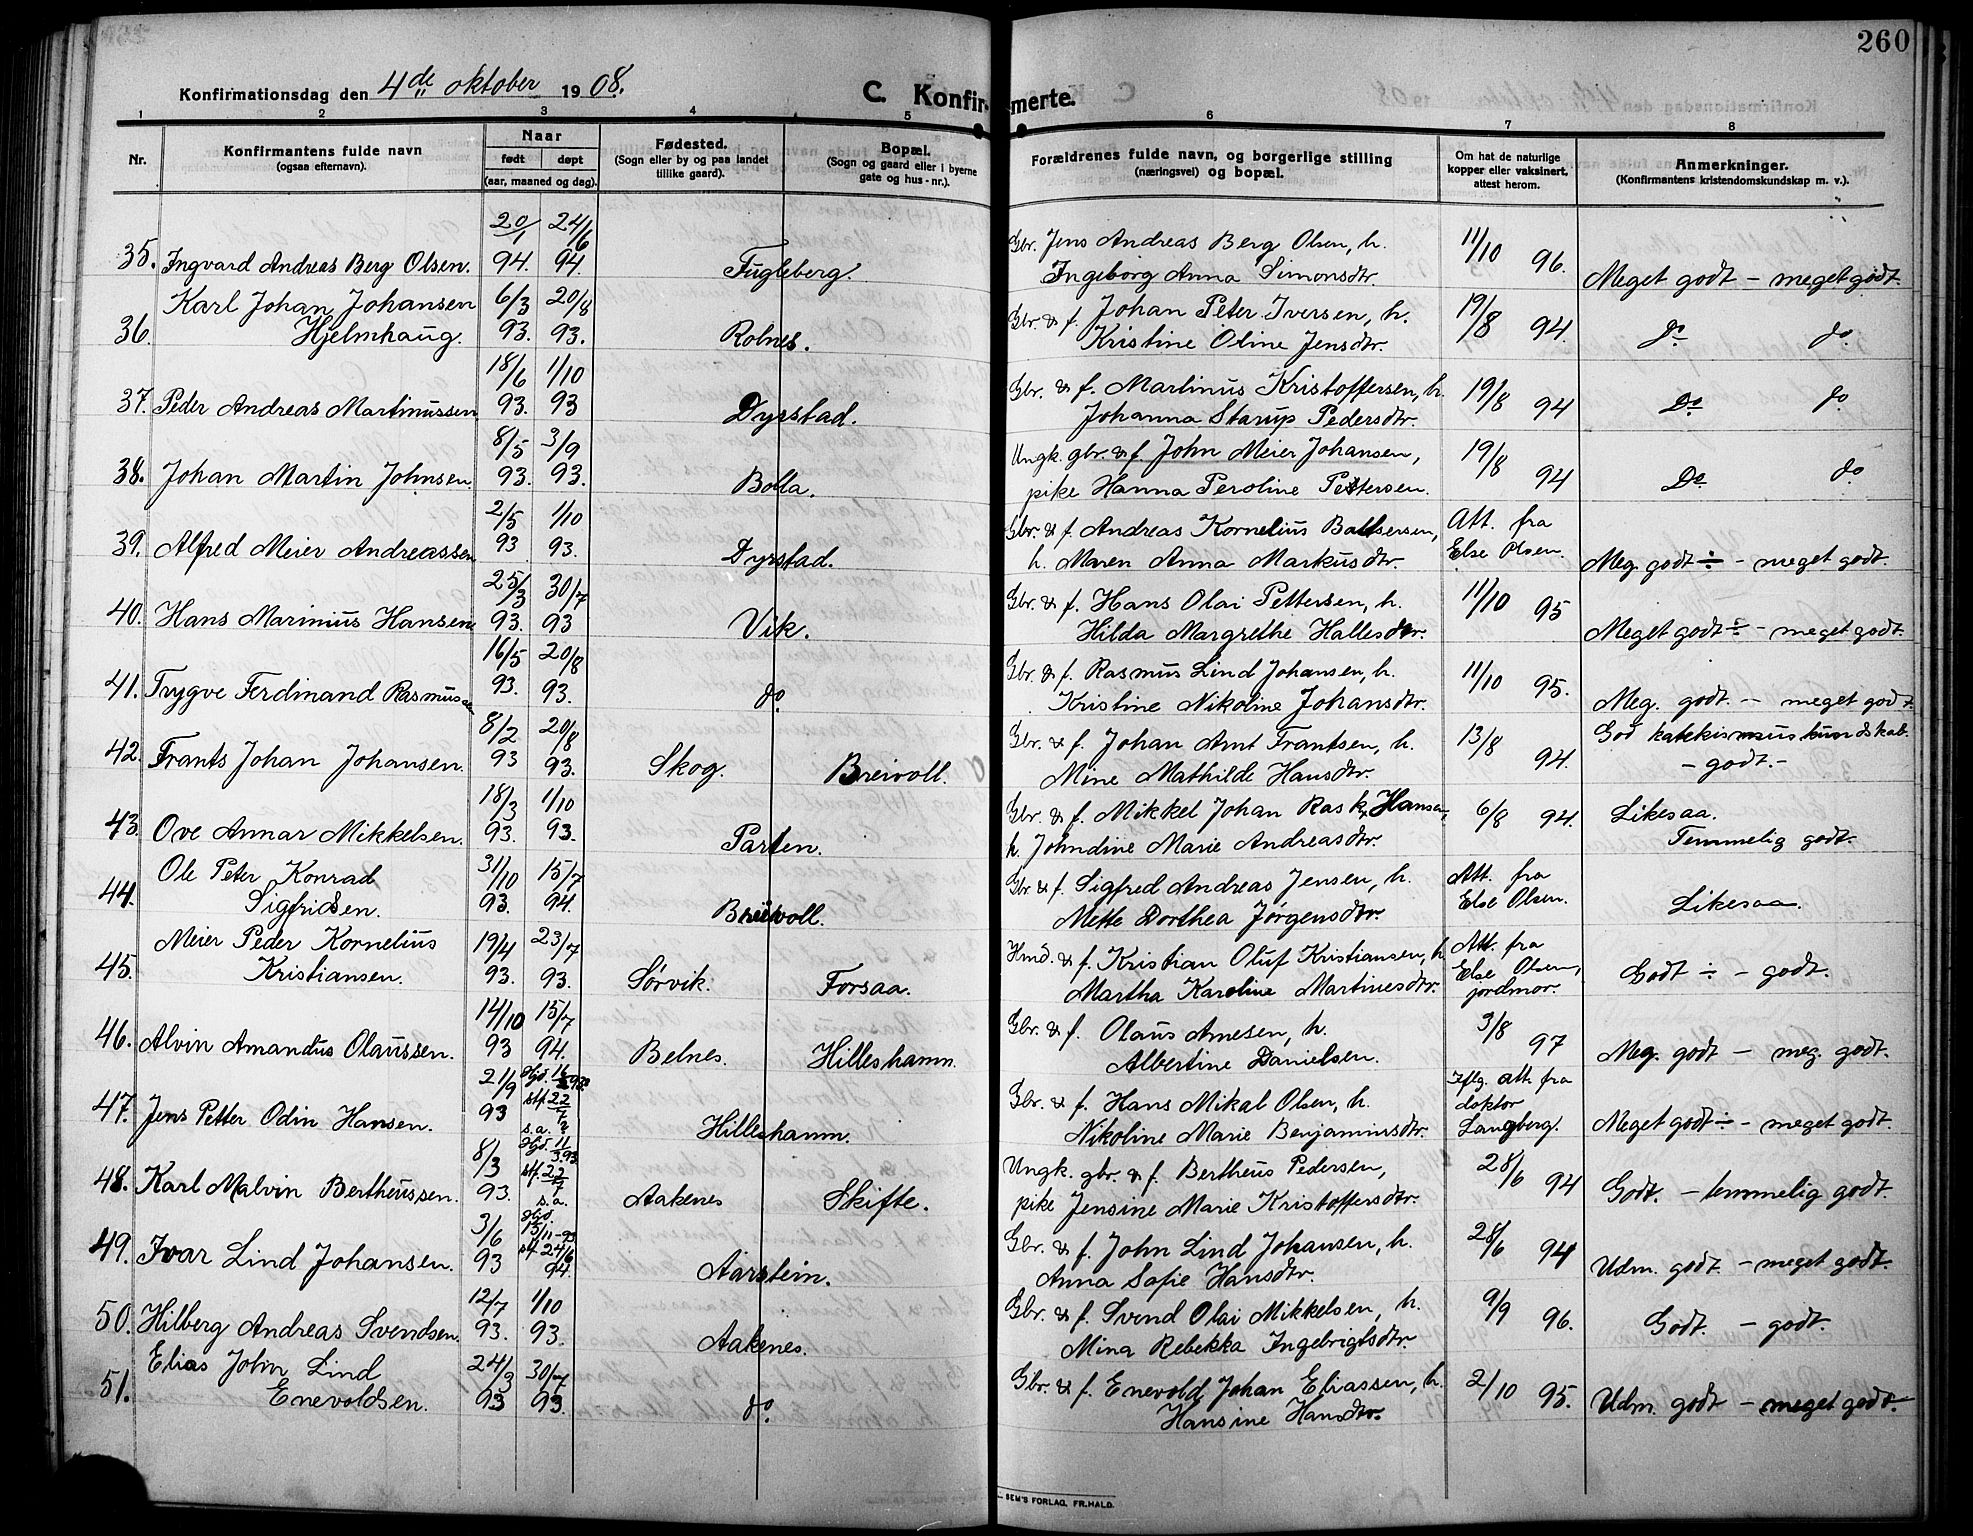 260
Konfirmationsdag den 4de oktober 1908.
C. Konfirmerte.
1 2 3 4 5 6 7 8
Nr.
Konfirmantens fulde navn
(ogsaa efternavn).
Naar
født døpt
(aar, maaned og dag).
Fødested.
(Sogn eller by og paa landet
tillike gaard).
Bopæl.
(Sogn og gaard eller i byerne
gate og hus-nr.).
Forældrenes fulde navn, og borgerlige stilling
(næringsvei) og bopæl.
Om hat de naturlige
kopper eller vaksinert,
attest herom.
Anmerkninger.
(Konfirmantens kristendomskundskap m. v.).
20/1 24/6 Gbr. Jens Andreas Berg Olsen, h. 11/10 96.
35. Ingvard Andreas Berg Olsen. 94. 94. Fugleberg. Ingeborg Anna Simonsdtr. Meget godt - meget godt.
Karl Johan Johansen 6/3 20/8 Gbr. & f. Johan Peter Iversen, h. 19/8 94.
36. Hjelmhaug. 93. 93. Rolnes. Kristine Oline Jensdtr. Do do
18/6 1/10 Gbr. & f. Martinus Kristoffersen, h. 19/8 94
37. Peder Andreas Martinussen 93. 93 Dyrstad. Johanna Starup Pedersdtr. Do do
8/5 3/9 Ungk. gbr. & f. John Meier Johansen, 19/8 94
38. Johan Martin Johnsen 93. 93. Bolla. pike Hanna Peroline Pettersen. Do do
2/5 1/10 Gbr. & f. Andreas Kornelius Baltsersen, Att. fra
39. Alfred Meier Andreassen 93 93. Dyrstad. h. Maren Anna Markusdtr. Else Olsen. Meg. godt ÷ - meget godt.
25/3 30/7 Gbr. & f. Hans Olai Pettersen, h. 11/10 95
40. Hans Marinius Hansen 93. 93 Vik. Hilda Margrethe Hallesdtr. Meget godt ÷ - meget godt.
16/5 20/8 Gbr. & f. Rasmus Lind Johansen, h. 11/10 95.
41. Trygve Ferdinand Rasmussen 93. 93. do Kristine Nikoline Johansdtr. Meg. godt. - meget godt.
8/2 20/8 Gbr. & f. Johan Arnt Frantsen, h. 13/8 94. God katekismuskundskab.
42. Frants Johan Johansen. 93 93. Skog. Breivoll. Mine Mathilde Hansdtr. - godt. -
18/3 1/10 Gbr. & f. Mikkel Johan Rask Hansen, 6/8 94. Likesaa.
43. Ove Annar Mikkelsen. 93. 93. Parten. h. Johndine Marie Andreasdtr. Temmelig godt.
Ole Peter Konrad 31/10 15/7 Gbr. & f. Sigfred Andreas Jensen, h. Att. fra
44. Sigfridsen. 93. 94. Breivoll. Mette Dorthea Jørgensdtr. Else Olsen. Likesaa.
Meier Peder Kornelius 19/4 23/7 Hmd. & f. Kristian Oluf Kristiansen, h. Att. fra
45. Kristiansen. 93. 93. Sørvik. Forsaa. Martha Karoline Martinesdtr. Else Olsen, jordmor. Godt ÷ - godt.
14/10 15/7 Gbr. & f. Olaus Arnesen, h. 3/8 97
46. Alvin Amandus Olaussen. 93 94. Belnes. Hilleshamn. Albertine Danielsen. Meg. godt - meg. godt.
21/9 Gbr. & f. Hans Mikal Olsen, h. Iflg. att. fra
47. Jens Petter Odin Hansen. 93 s.a. Hilleshamn. Nikoline Marie Benjaminsdtr. doktor Langberg. Meget godt ÷ - meget godt.
8/3 Ungk. gbr. & f. Bertheus Pedersen, 28/6 94
48. Karl Malvin Bertheussen. 93. s.a. Aakenes Skifte. pike Jensine Marie Kristoffersdtr. Godt. - temmelig godt.
3/6 hjd. 13/11-93 Gbr. & f. John Lind Johansen, h. 28/6 94
49. Ivar Lind Johansen. 93 stf. 24/6 94. Aarstein. Anna Sofie Hansdtr. Udm. godt. - meget godt.
12/7 1/10 Gbr. & f. Svend Olai Mikkelsen, h. 9/9 96.
50. Hilberg Andreas Svendsen. 93. 93. Aakenes. Mina Rebekka Ingebrigtsdtr. Godt. - godt.
Elias John Lind 24/3 30/7 Gbr. & f. Enevold Johan Eliassen, h. 2/10 95.
51. Enevoldsen. 93 93. do. Hansine Hansdtr. Udm. godt - meget godt.
SEM'S FORLAG, FR.HALD.